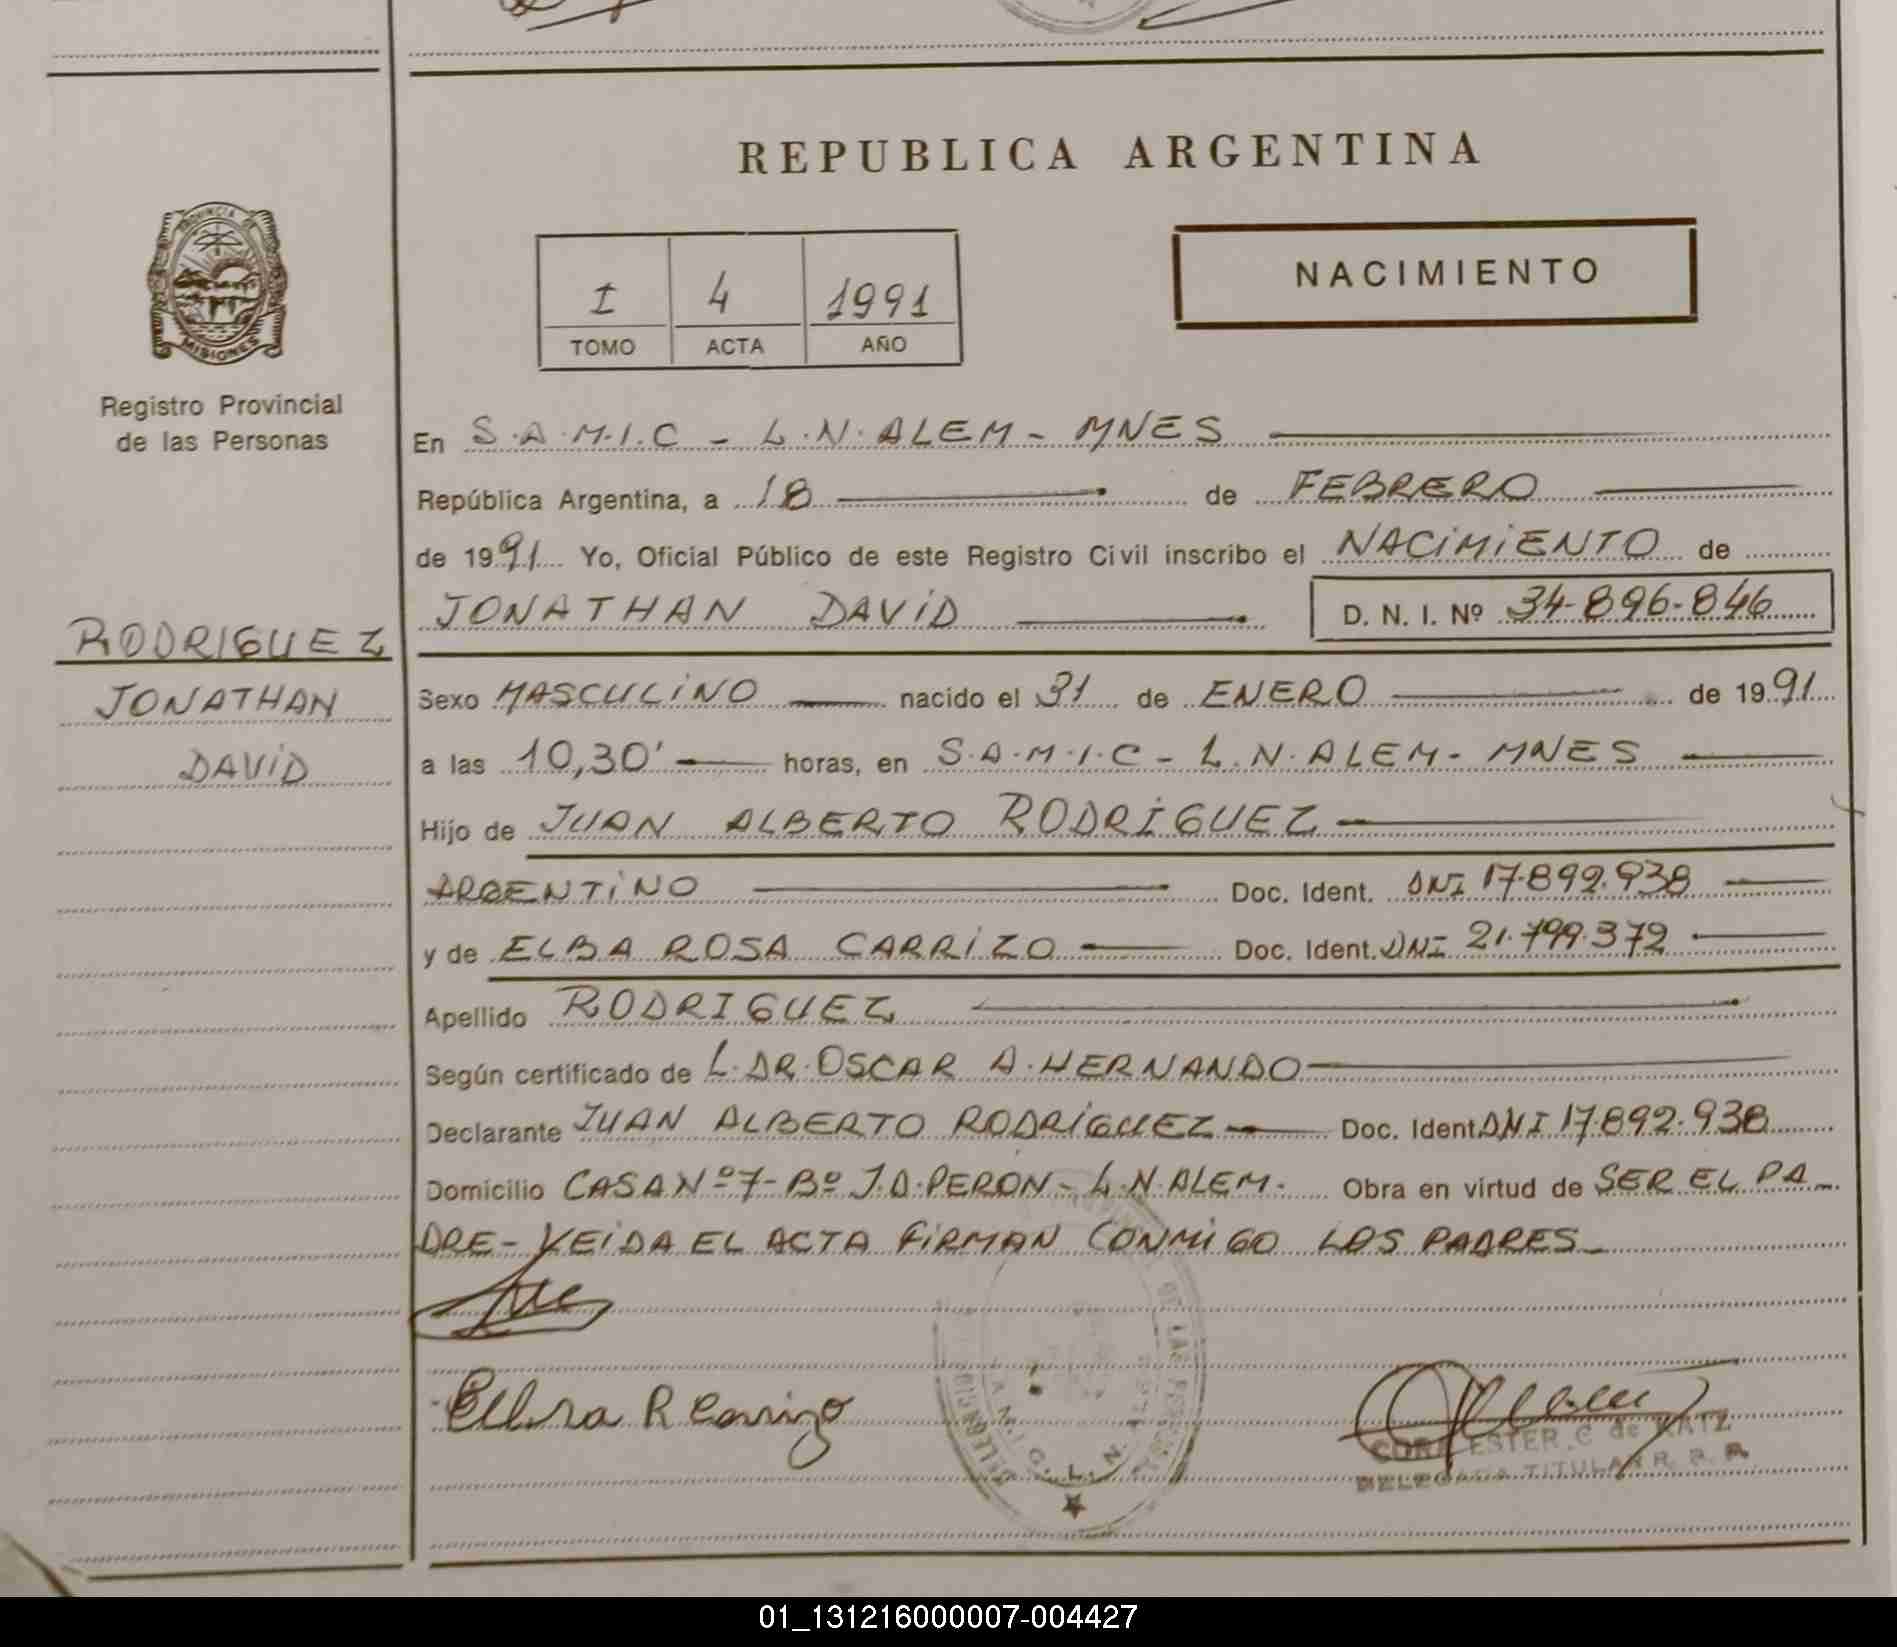 REPUBLICA ARGENTINA
PROVINCIA DE
MISIONES
Registro Provincial
de las Personas
I 4 1991
TOMO ACTA AÑO
NACIMIENTO
En S.A.M.I.C - L.N.ALEM - MNES
República Argentina, a 18 de FEBRERO
de 1991 Yo, Oficial Público de este Registro Civil inscribo el NACIMIENTO de
JONATHAN DAVID D. N. I. Nº 34-896-846
RODRIGUEZ
JONATHAN
DAVID
Sexo MASCULINO nacido el 31 de ENERO de 1991
a las 10,30' horas, en S.A.M.I.C - L.N.ALEM - MNES
Hijo de JUAN ALBERTO RODRIGUEZ
ARGENTINO Doc. Ident. DNI 17.892.938
y de ELBA ROSA CARRIZO Doc. Ident. DNI 21.799.372
Apellido RODRIGUEZ
Según certificado de L.DR.OSCAR A.HERNANDO
Declarante JUAN ALBERTO RODRIGUEZ Doc. Ident DNI 17.892.938
Domicilio CASA Nº 7 - Bº J.D.PERON - L.N.ALEM. Obra en virtud de SER EL PA
DRE - LEIDA EL ACTA FIRMAN CONMIGO LOS PADRES
Elba R Carrizo
ESTER C de KATZ
DELEGADA TITULAR R. P. P.
01_131216000007-004427